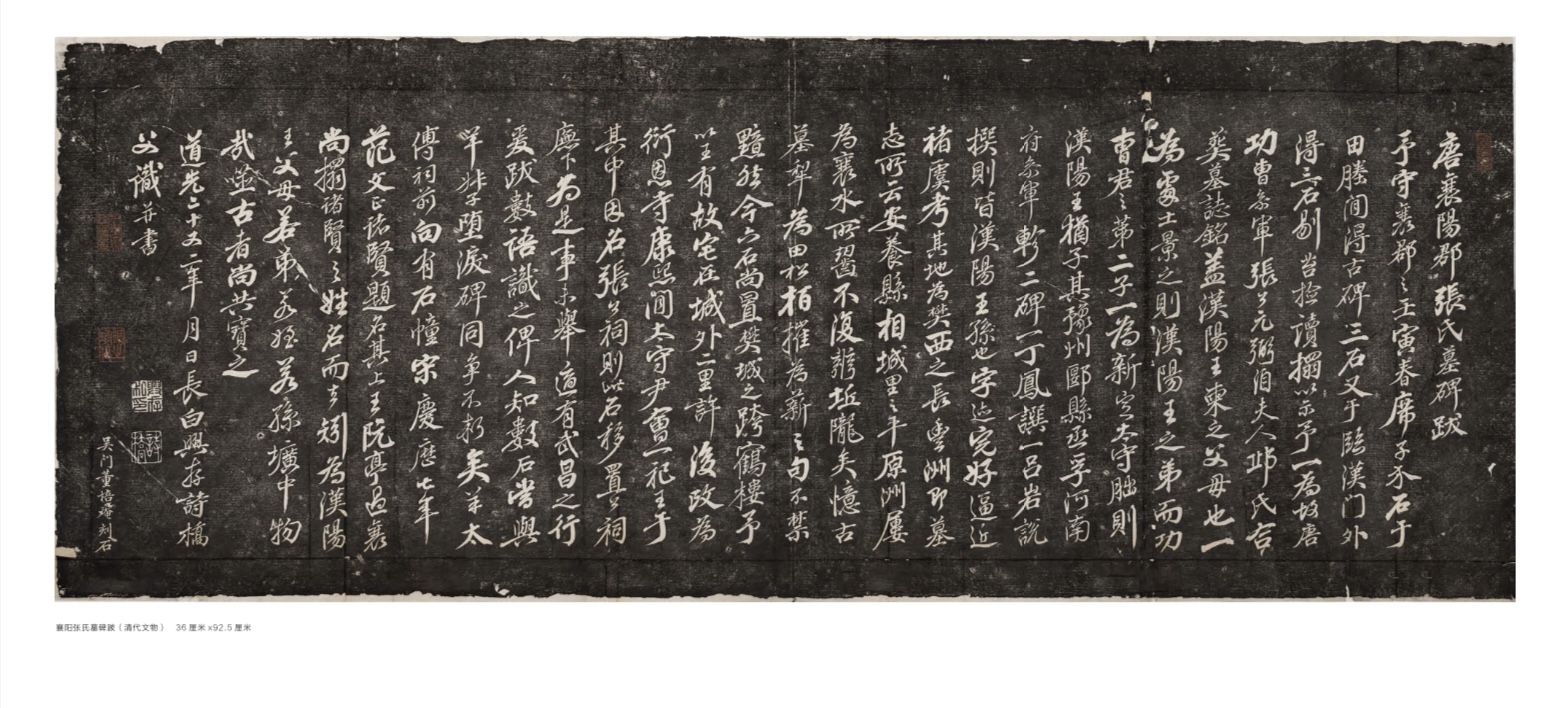 唐襄陽郡張氏墓碑跋
予守襄郡之壬寅春席子木石于
田塍間得古碑三石又于臨漢門外
得三石剔苔捡讀搨以示予一為故唐
功曹叅軍張公元弼洎夫人邱氏合
葬墓誌銘蓋漢陽王柬之父母也一
為處士景之則漢陽王之弟而功
曹君之第二子一為新定太守朏則
漢陽王猶子其豫州郾縣丞孚河南
府叅軍軫二碑一丁鳳譔一吕岩說
撰則皆漢陽王孫也字迹完好逼近
褚虞考其地為樊西之長豊洲即墓
志所云安養縣相城里之平原洲屢
為襄水所齧不復辨坵隴矣憶古
墓犁為田松栢摧為薪之句不禁
黯然今六石尚置樊城之跨鶴樓予
以王有故宅在城外二里許後改為
衍恩寺康熙間太守尹會一祀王于
其中因名張公祠則此石移置公祠
廡下為是事未舉適有武昌之行
爰跋數語識之俾人知數石當與
羊叔子堕淚碑同争不朽矣羊太
傅祠前向有石幢宋慶歴七年
范文正諸賢題名其上王阮亭過襄
尚搨諸賢之姓名而去矧為漢陽
王父母若弟若姪若孫壙中物
哉鑒古者尚共寶之
道光二十五二年月日長白興存詩橋
父識并書
吴门董培墖刻石
襄阳张氏墓碑跋（清代文物） 36厘米x92.5厘米